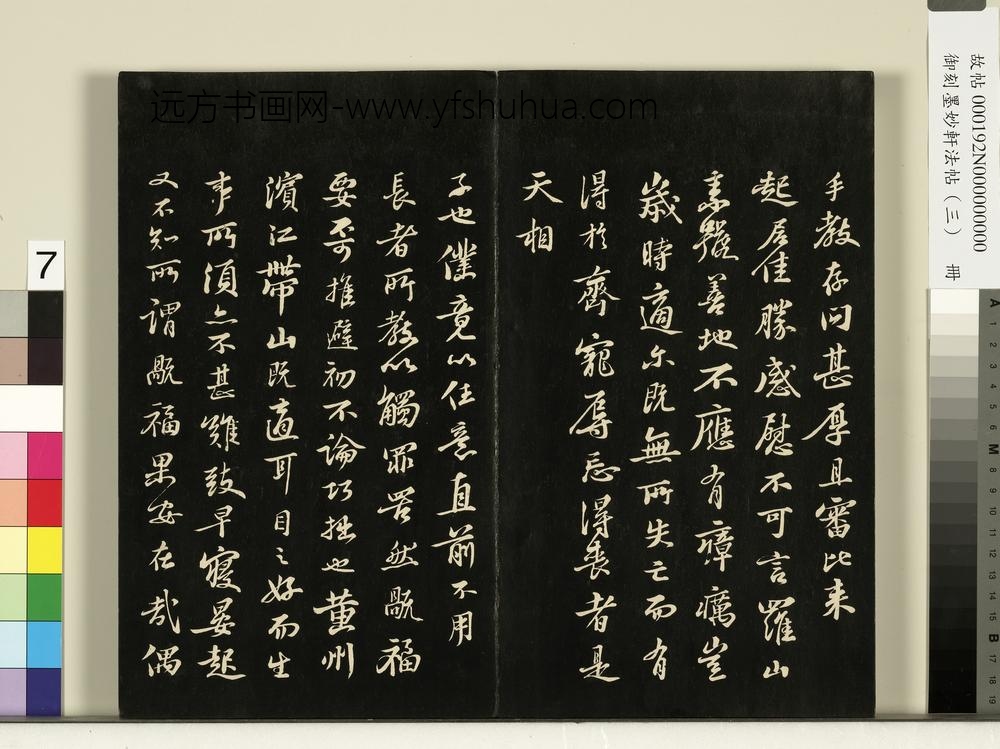 手教存问甚厚且審比来
起居佳勝感慰不可言羅山
素號善地不應有瘴癘豈
歲時適尔既無所失亡而有
得於齊寵辱忘得喪者是
天相
子也僕竟以任意直前不用
長者所教以觸罪罟然禍福
要不可推避初不論巧拙也黃州
濱江帶山既適耳目之好而生
事所須亦不甚難致早寢晏起
又不知所謂禍福果安在哉偶
远方书画网-www.yfshuhua.com
故帖 000192N000000000
御刻墨妙軒法帖(三) 冊
7
A 1 2 3 4 5 6 M 8 9 10 11 12 13 14 15 B 17 18 19